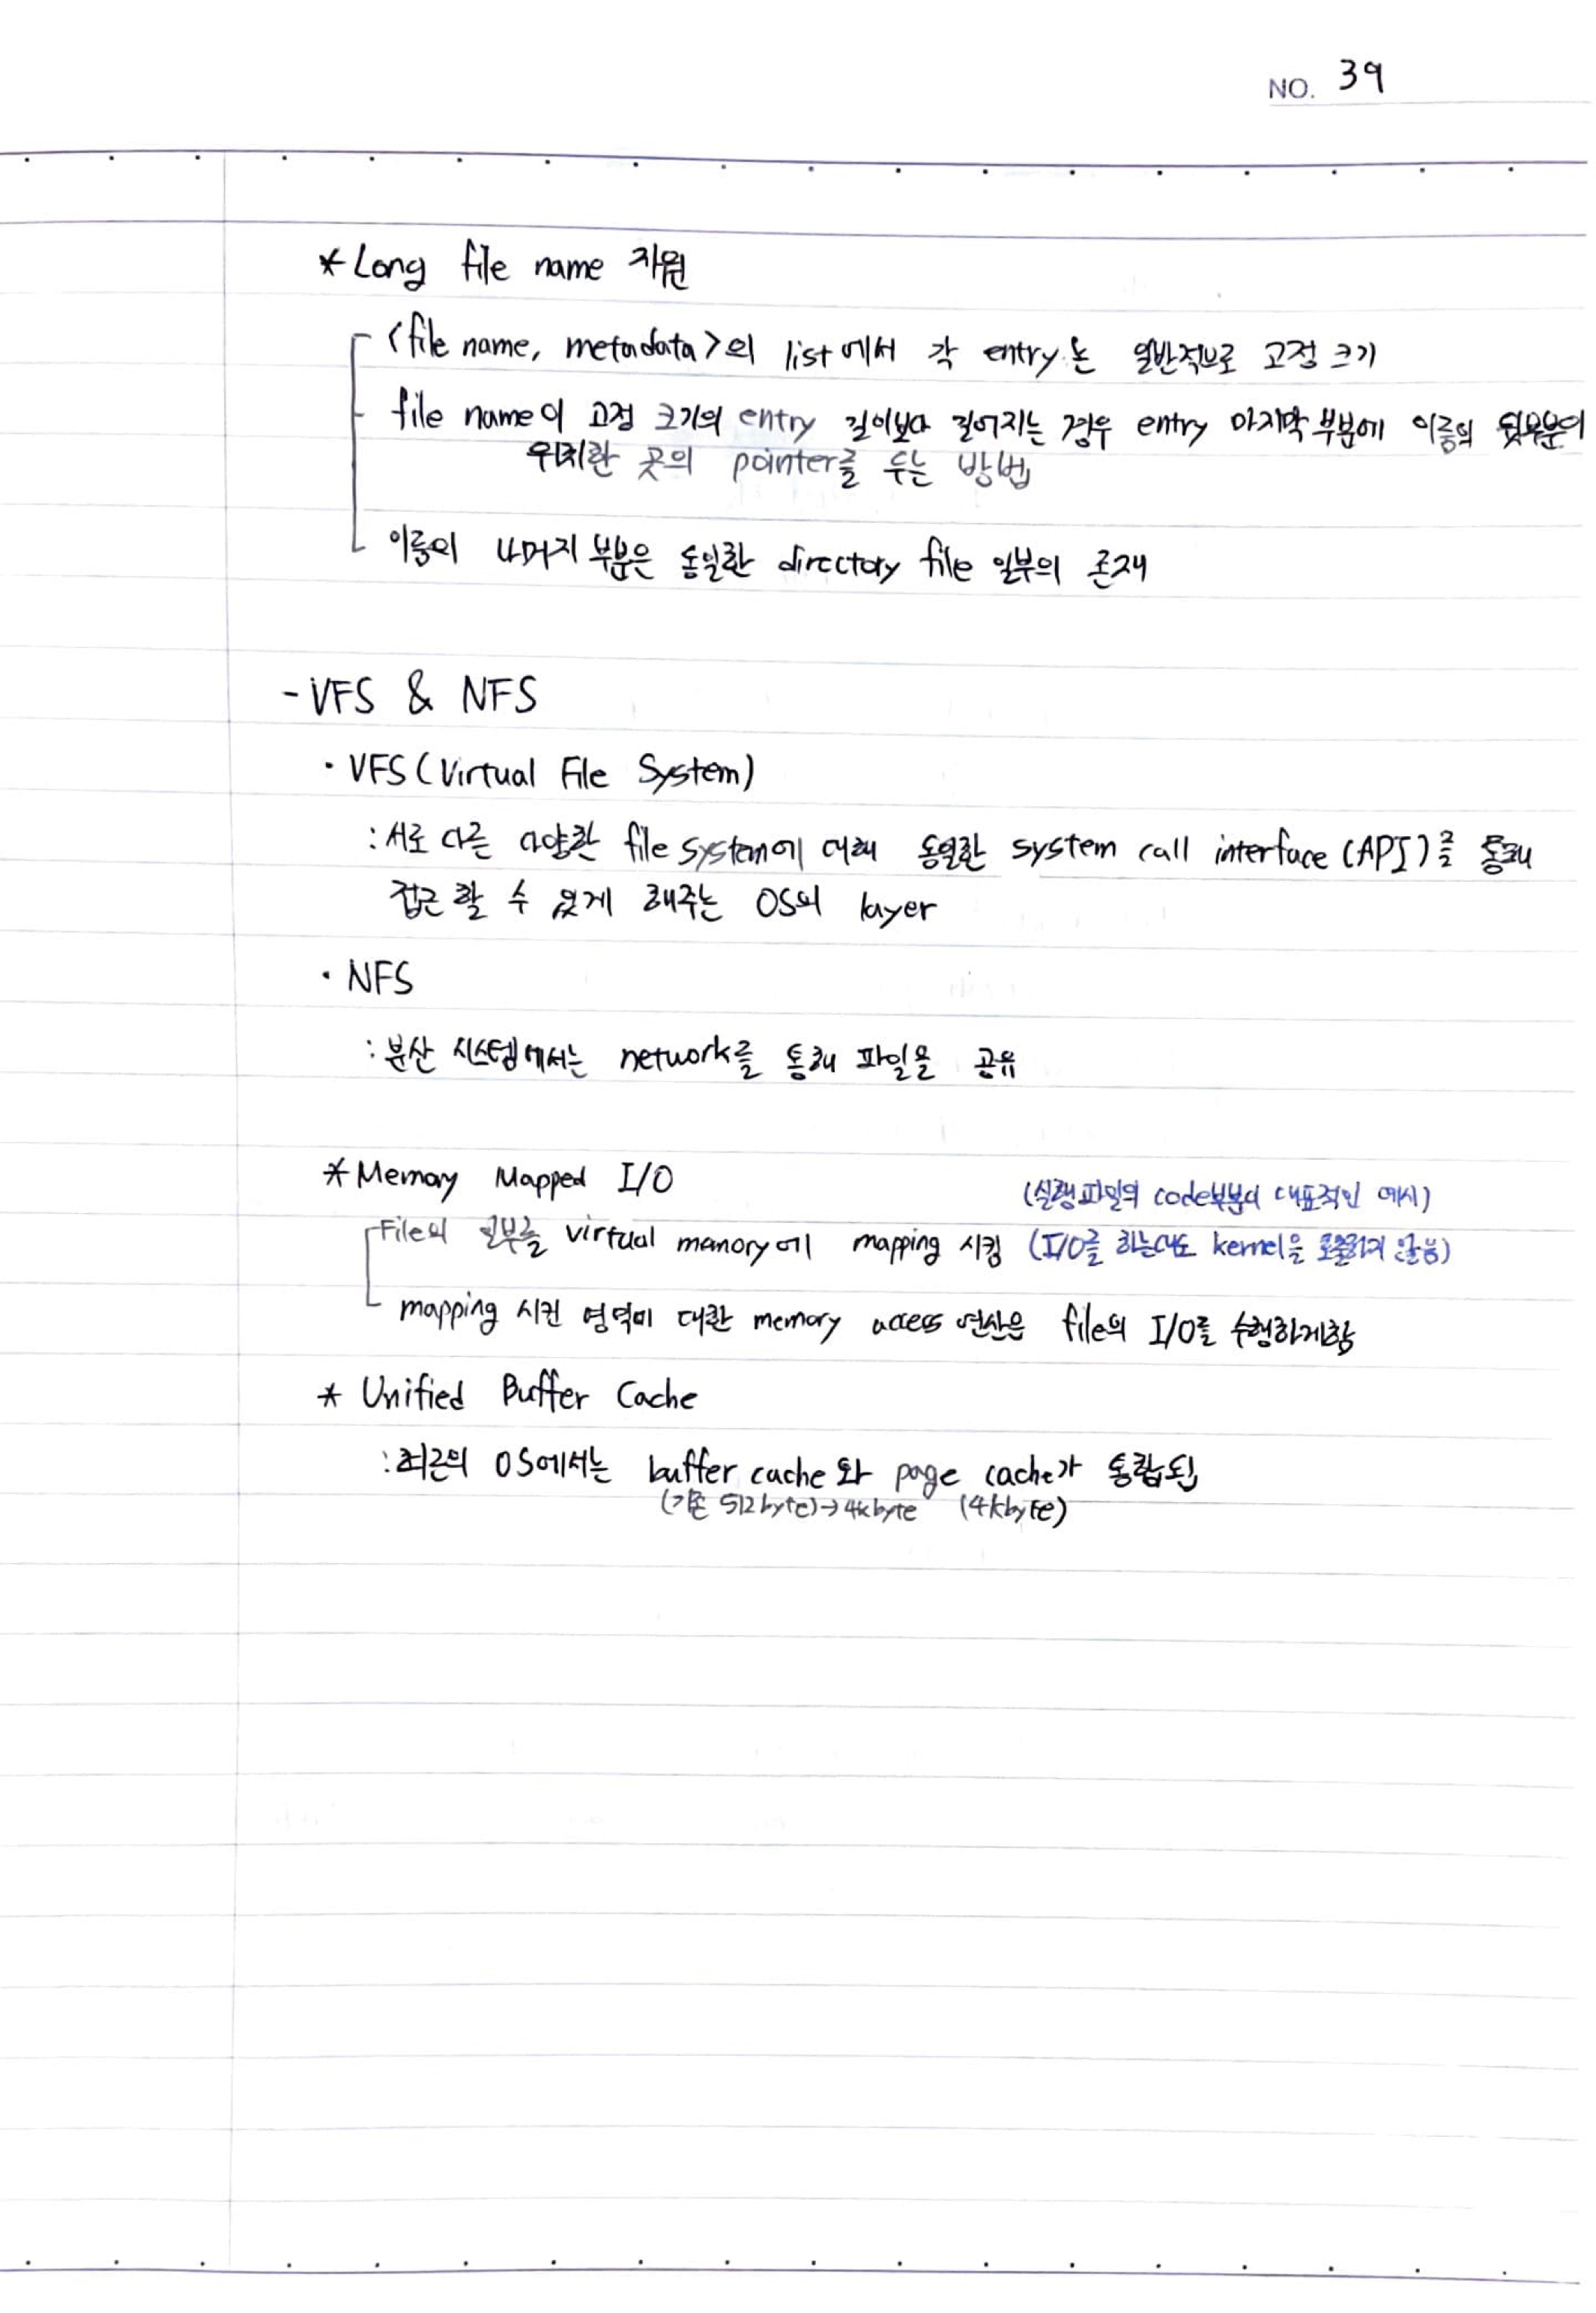 NO. 39
* Long file name 지원
<file name, metadata>의 list에서 각 entry는 일반적으로 고정 크기
file name이 고정 크기의 entry 길이보다 길어지는 경우 entry 마지막 부분에 이름의 뒷부분이
위치한 곳의 pointer를 두는 방법
이름의 나머지 부분은 동일한 directory file 일부의 존재
- VFS & NFS
· VFS (Virtual File System)
: 서로 다른 다양한 file system에 대해 동일한 system call interface (API)를 통해
접근 할 수 있게 해주는 OS의 layer
· NFS
: 분산 시스템에서는 network를 통해 파일을 공유
* Memory Mapped I/O
(실행파일의 code부분이 대표적인 예시)
File의 일부를 virtual manory에 mapping 시킴 (I/O를 하는데도 kernel을 호출하지 않음)
mapping 시킨 영역에 대한 memory access 연산은 file의 I/O를 수행하게함
* Unified Buffer Cache
: 최근의 OS에서는 buffer cache와 page cache가 통합됨
(기존 512 byte) → 4k byte (4k byte)